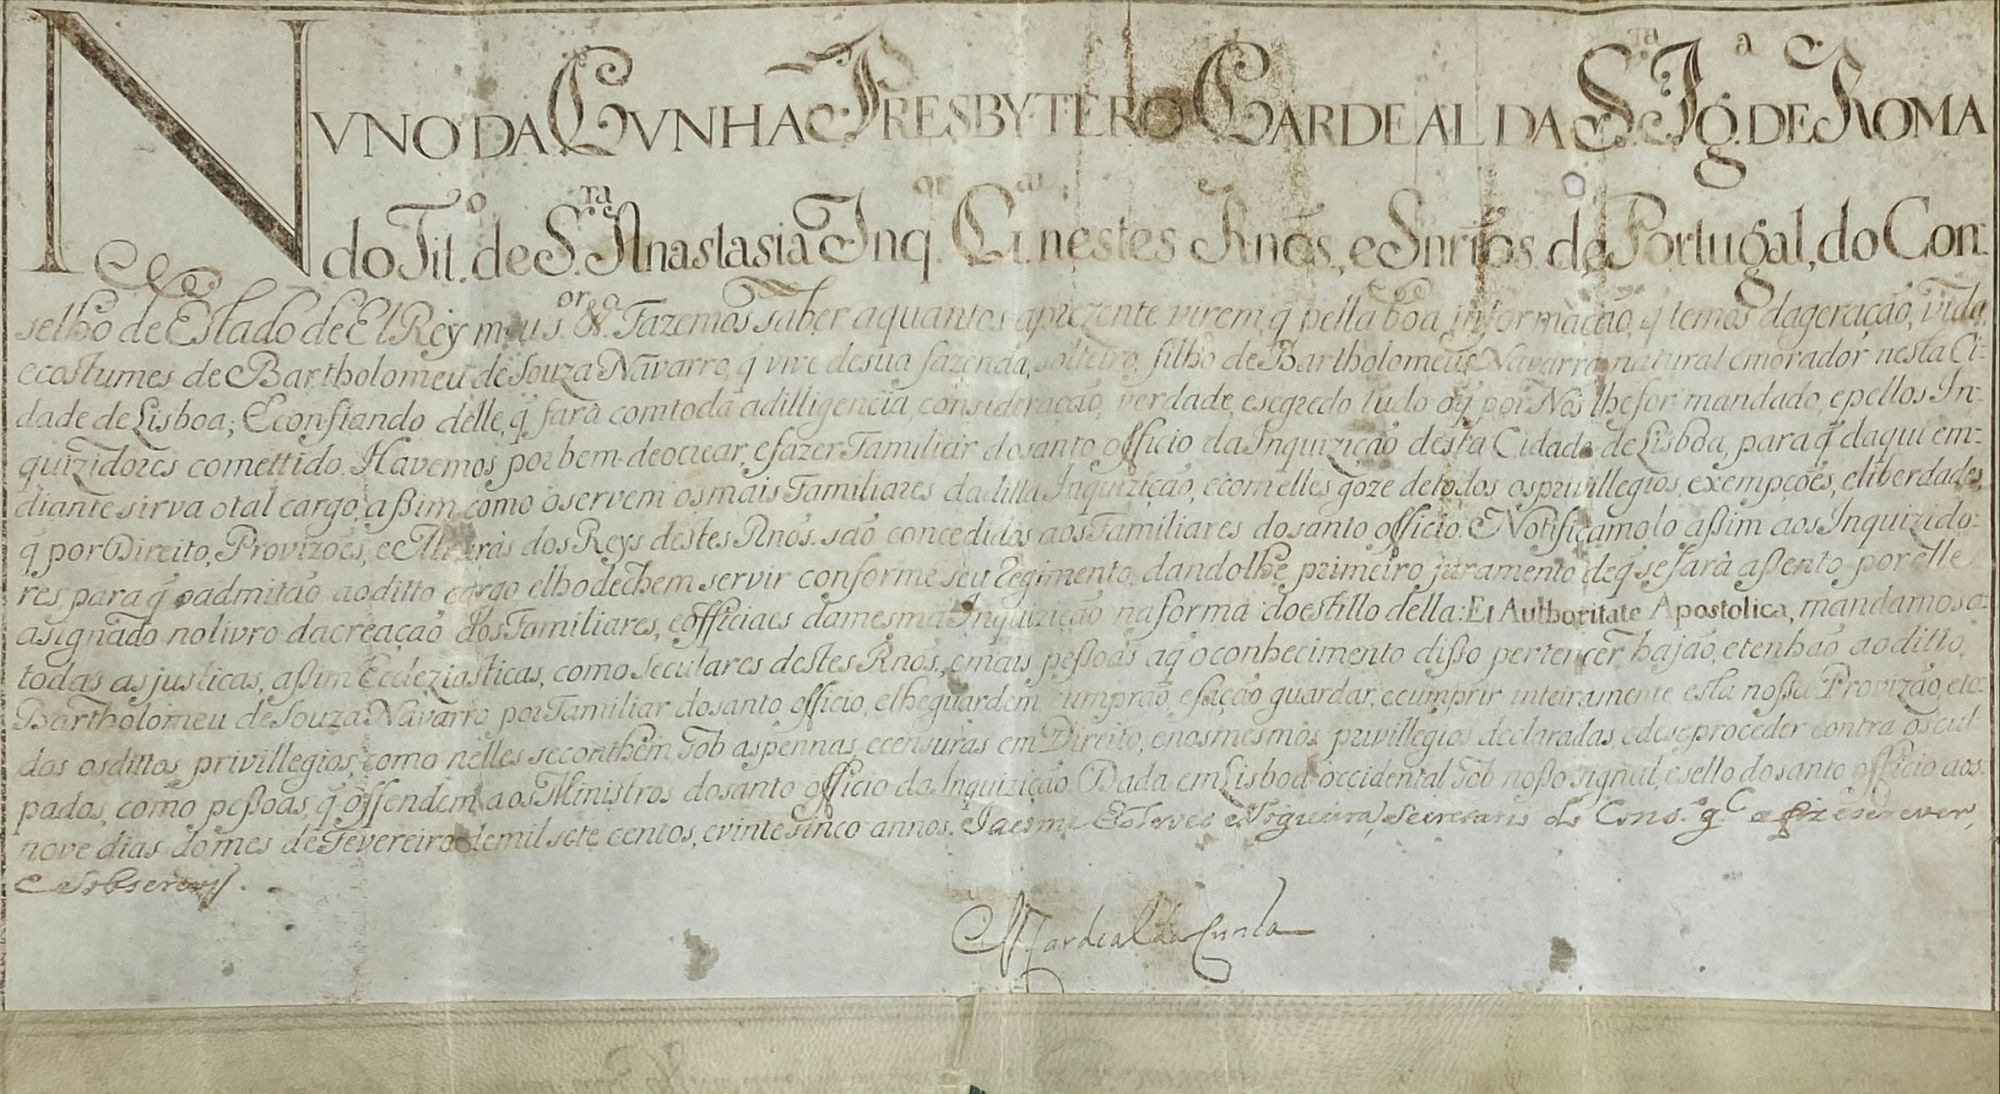 NVNO DA CVNHA PRESBYTERO CARDEAL DA S.ta Ig.a DE ROMA
do Tit.o de S.ta Anastasia Inq.or G.al nestes Rnos, e Snrios de Portugal, do Con:
selho de Estado de El Rey meu s.or &.a Fazemos saber aquantos aprezente virem, q̃ pella boa informação, q̃ temos dageração, vida,
ecostumes de Bartholomeu de Souza Navarro, q̃ vive desua fazenda, solteiro, filho de Bartholomeu Navarro natural emorador nesta Ci:
dade de Lisboa; Econfiando delle, q̃ fará comtoda adilligencia, consideração, verdade, esegredo tudo oq̃ por Nós lhefor mandado, epellos In:
quizidores comettido. Havemos por bem deocrear, efazer Familiar dosanto officio da Inquizição desta Cidade de Lisboa, para q̃ daqui em:
diante sirva o tal cargo, aßim como oservem osmais Familiares daditta Inquizição, ecomelles goze detodos osprivillegios, exempções, eliberdades,
q̃ por Direito, Provizões, e Alvarás dos Reys destes Rnos. são concedidos aos Familiares dosanto officio. E Notificamolo aßim aos Inquizido:
res, para q̃ oadmitão aoditto cargo elhodechem servir conforme seu Regimento, dandolhe primeiro juramento deq̃ sefará aßento por elle
asignado nolivro dacreação dos Familiares, eofficiaes damesma Inquizição naforma doestillo della: Et Authoritate Apostolica, mandamos a:
todas asjusticas, aßim Ecclezíasticas, como seculares destes Rnos, emais peßoas aq̃ oconhecimento dißo pertencer, hajão, etenhão aoditto,
Bartholomeu de Souza Navarro por Familiar dosanto officio, elheguardem, cumprão, efação guardar, ecumprir inteiramente esta noßa Provizão, eto:
dos osdittos privillegios, como nelles seconthem sob aspennas, ecensuras em Direito, enosmesmos privillegios declaradas, edeseproceder contra oscul:
pados, como peßoas, q̃ offendem aos Ministros dosanto officio da Inquizição. Dada em Lisboa occidental sob noßo signal, esello dosanto officio aos
nove dias domes de Fevereiro demil sete centos, evintesinco annos. Jacome Esteves Nogueira, Secretario do Cons.o g.l afiz escrever,
e sobscrevi.
N. Cardeal da Cunha